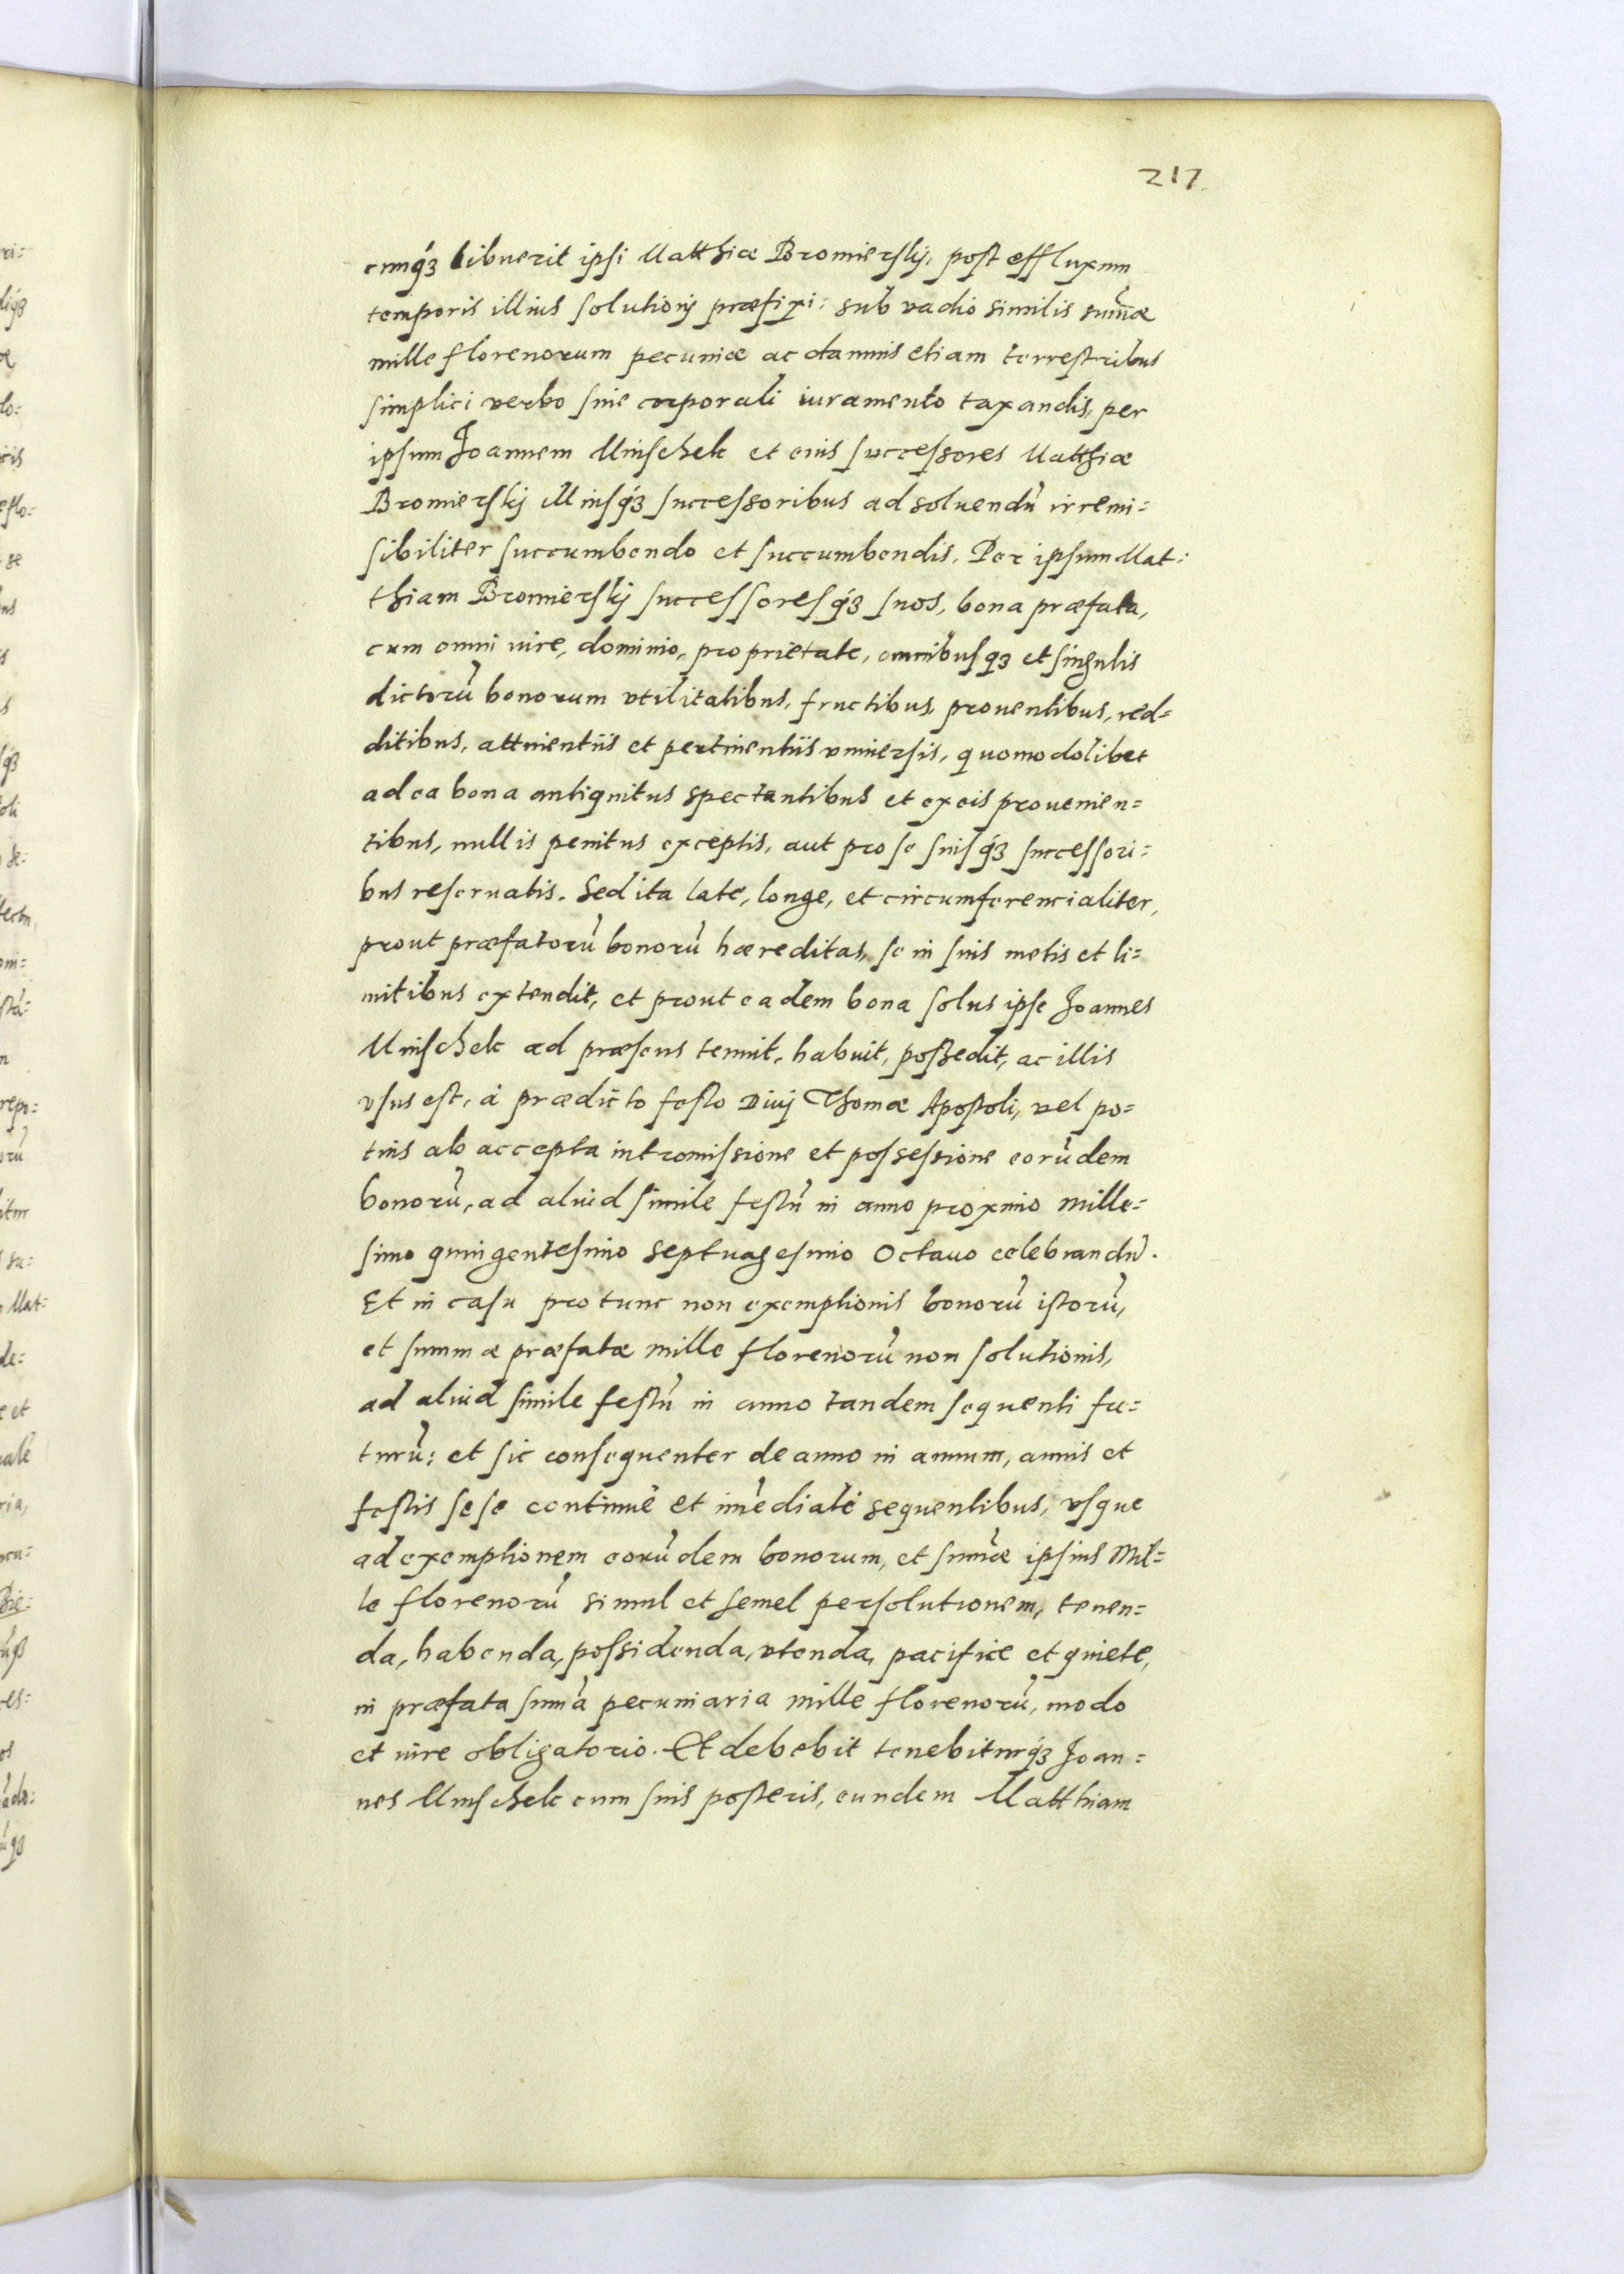 217
cunq́ꝫ libuerit ipsi Matthiæ Bromierskij, post effluxum
temporis illius solutionj præfixi: sub vadio similis sum̃æ
mille florenorum pecuniæ ac damnis etiam terrestribus
simplici verbo sine corporali iuramento taxandis, per
ipsum Joannem Mnischek et eius successores Matthiæ
Bromierskj illiusq́ꝫ successoribus ad soluendũ irremi=
sibiliter succumbendo et succumbendis. Per ipsum Mat:
thiam Bromierskj successoresq́ꝫ suos, bona præfata,
cum omni iure, dominio, proprietate, omnibusqꝫ et singulis
dictorũ bonorum vtilitatibus, fructibus, prouentibus, red=
ditibus, attinentiis et pertinentiis vniuersis, quomodolibet
ad ea bona antiquitus spectantibus et ex eis prouenien=
tibus, nullis penitus exceptis, aut pro se suisq́ꝫ successori=
bus reseruatis. Sed ita late, longe, et circumferencialiter,
prout præfatorũ bonorũ hæreditas, se in suis metis et li=
mitibus extendit, et prout eadem bona solus ipse Joannes
Mnischek ad præsens tenuit, habuit, possedit, ac illis
vsus est, à prædicto festo Diuj Thomæ Apostoli, vel po=
tius ab accepta intromissione et possessione eorũdem
bonorũ, ad aliud simile festũ in anno proximo mille=
simo quingentesimo septuagesimo Octauo celebrandũ.
Et in casu pro tunc non exemptionis bonorũ istorũ,
et summæ præfatæ mille florenorũ non solutionis,
ad aliud simile festũ in anno tandem sequenti fu=
turũ: et sic consequenter de anno in annum, annis et
festis sese continuè et im̃ediatè sequentibus, vsque
ad exemptionem eorũdem bonorum, et sum̃æ ipsius Mil=
le florenorũ simul et semel persolutionem, tenen=
da, habenda, possidenda, vtenda, pacifice et quiete,
in præfata sum̃a pecuniaria mille florenorũ, modo
et iure obligatorio. Et debebit tenebiturq́ꝫ Joan=
nes Mnischek cum suis posteris, eundem Matthiam